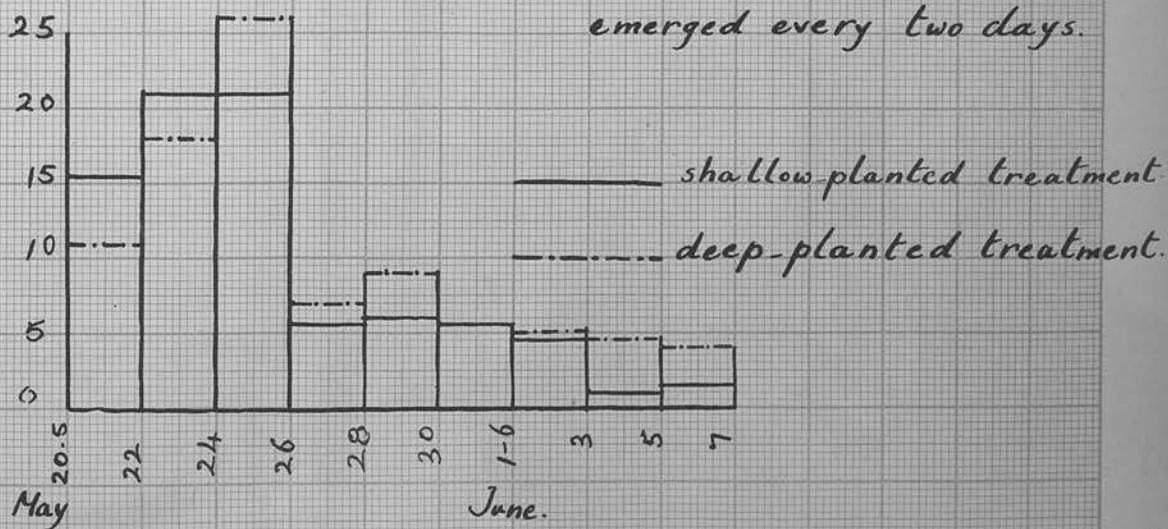 25
emerged every two days.
20
15
shallow-planted treatment
10
deep-planted treatment.
5
0
20.5
22
24
26
28
30
1-6
3
5
7
May
June.